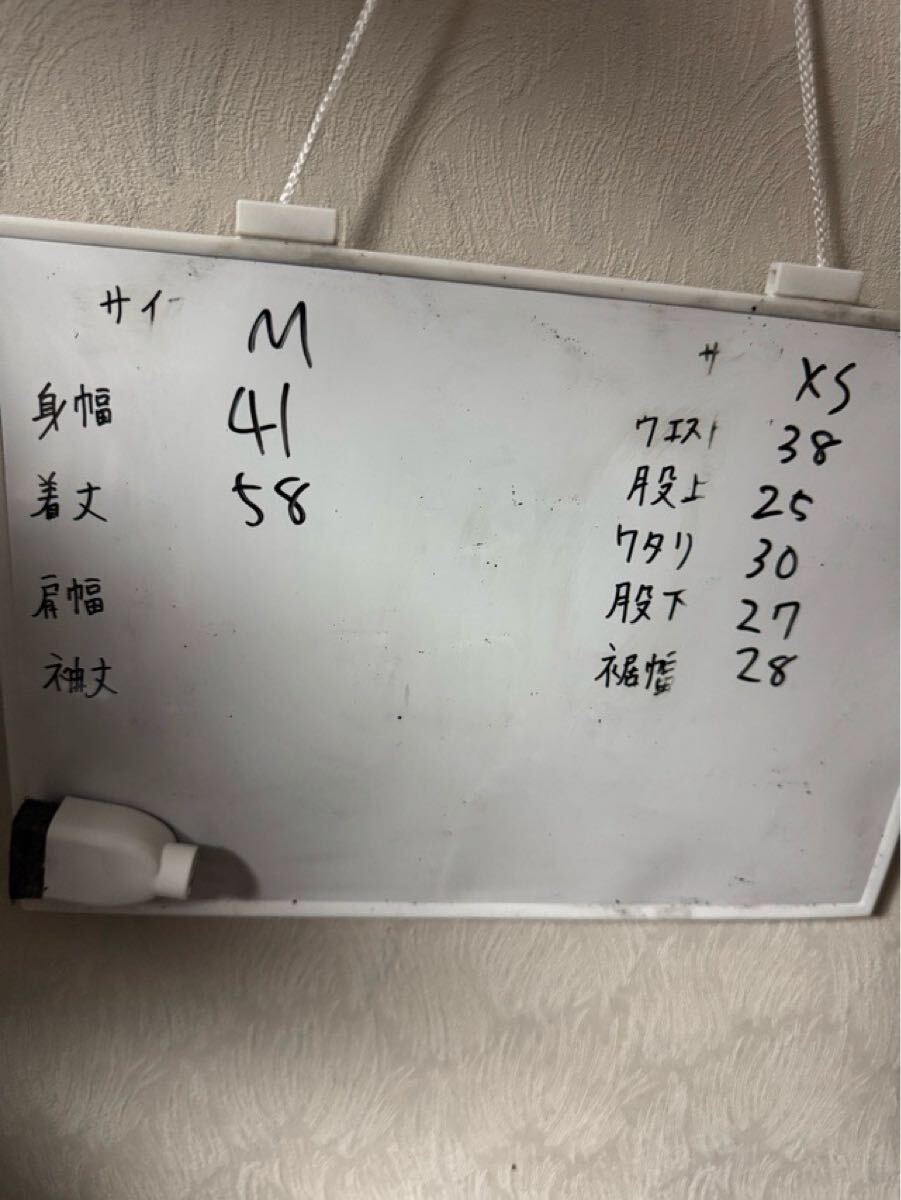 サイ M
身幅 41
着丈 58
肩幅
袖丈
サ XS
ウエスト 38
股上 25
ワタリ 30
股下 27
裾幅 28